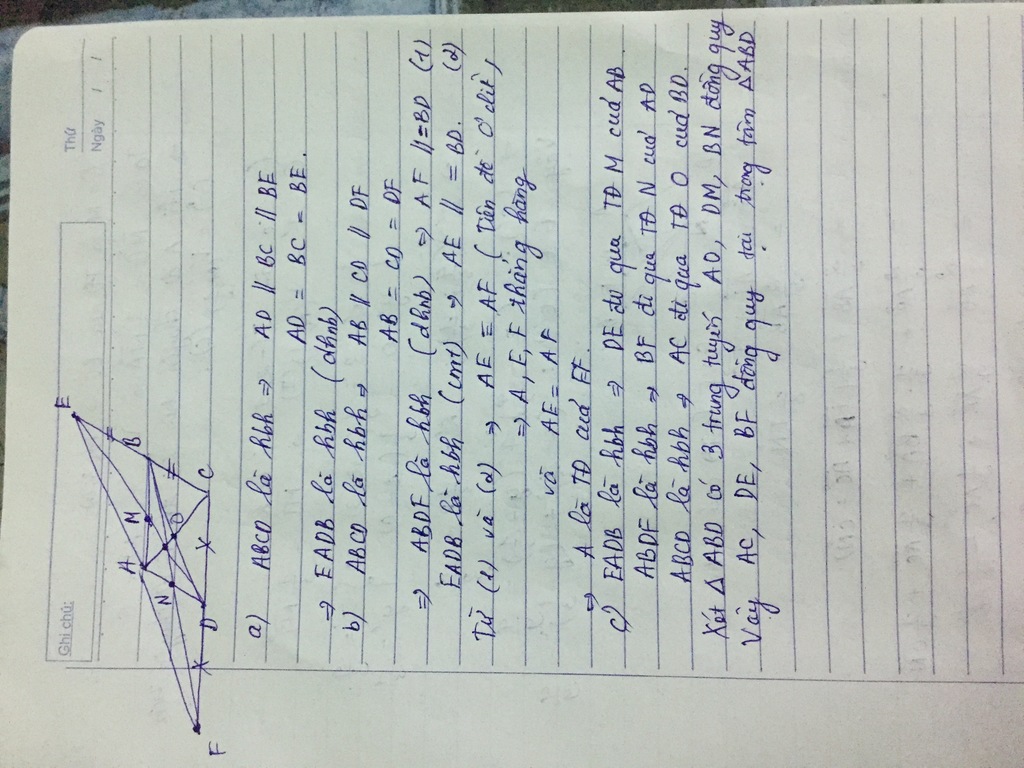 Ghi chú:
Thứ
Ngày / /
E
A M B
N O
F D C
a) ABCD là hbh ⇒ AD // BC // BE
AD = BC = BE.
⇒ EADB là hbh (dhnb)
b) ABCD là hbh ⇒ AB // CD // DF
AB = CD = DF
⇒ ABDF là hbh (dhnb) ⇒ AF //= BD (1)
EADB là hbh (cmt) ⇒ AE // = BD. (2)
Từ (1) và (2) ⇒ AE ≡ AF (Tiên đề Ơ clit)
⇒ A, E, F thẳng hàng
và AE = AF
⇒ A là TĐ của EF.
c) EADB là hbh ⇒ DE đi qua TĐ M của AB
ABDF là hbh ⇒ BF đi qua TĐ N của AD
ABCD là hbh ⇒ AC đi qua TĐ O của BD.
Xét △ ABD có 3 trung tuyến AO, DM, BN đồng quy
Vậy AC, DE, BF đồng quy tại trọng tâm △ABD